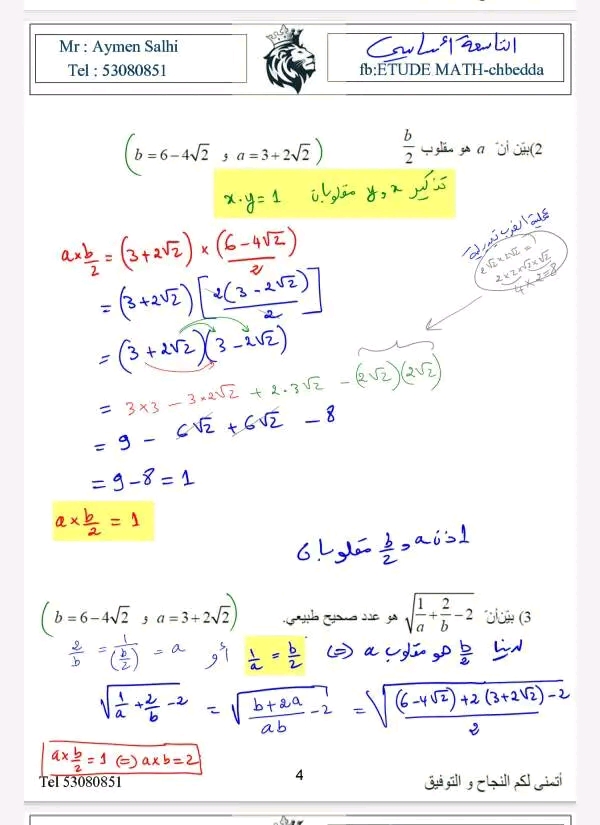 Mr : Aymen Salhi
Tel : 53080851
التاسعة أساسي
fb:ETUDE MATH-chbedda
2) بيّن أنّ a هو مقلوب b/2 (a = 3 + 2√2 و b = 6 − 4√2)
تذكير x و y مقلوبان x·y = 1
a × b/2 = (3 + 2√2) × (6 − 4√2)/2
عملية الضرب تبديلية
2√2 × 2√2 =
2×2×√2×√2
4 × 2 = 8
= (3 + 2√2) [2(3 − 2√2)/2]
= (3 + 2√2)(3 − 2√2)
= 3×3 − 3×2√2 + 2·3√2 − (2√2)(2√2)
= 9 − 6√2 + 6√2 − 8
= 9 − 8 = 1
a × b/2 = 1
اذن a و b/2 مقلوبان
3) بيّن أنّ √(1/a + 2/b − 2) هو عدد صحيح طبيعي. (a = 3 + 2√2 و b = 6 − 4√2)
لدينا b/2 هو مقلوب a ⇔ 1/a = b/2 أو 2/b = 1/(b/2) = a
√(1/a + 2/b − 2) = √((b + 2a)/ab − 2) = √(((6 − 4√2) + 2(3 + 2√2))/2 − 2)
a × b/2 = 1 ⇔ a × b = 2
Tel 53080851
4
أتمنى لكم النجاح و التوفيق